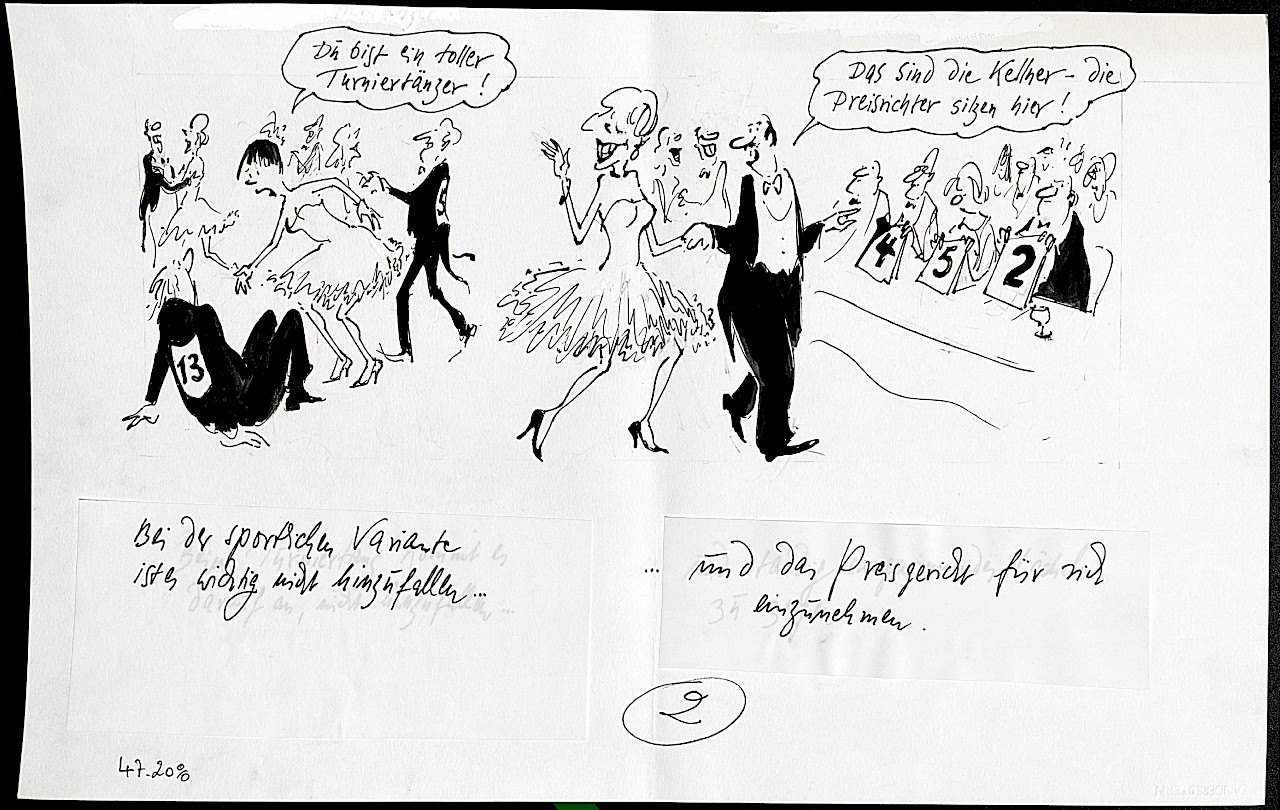 Du bist ein toller
Turniertänzer!
Das sind die Kellner - die
Preisrichter sitzen hier!
5
13
4
5
2
Bei der sportlichen Variante
ist es wichtig nicht hinzufallen...
... und das Preisgericht für sich
einzunehmen.
2
47.20%